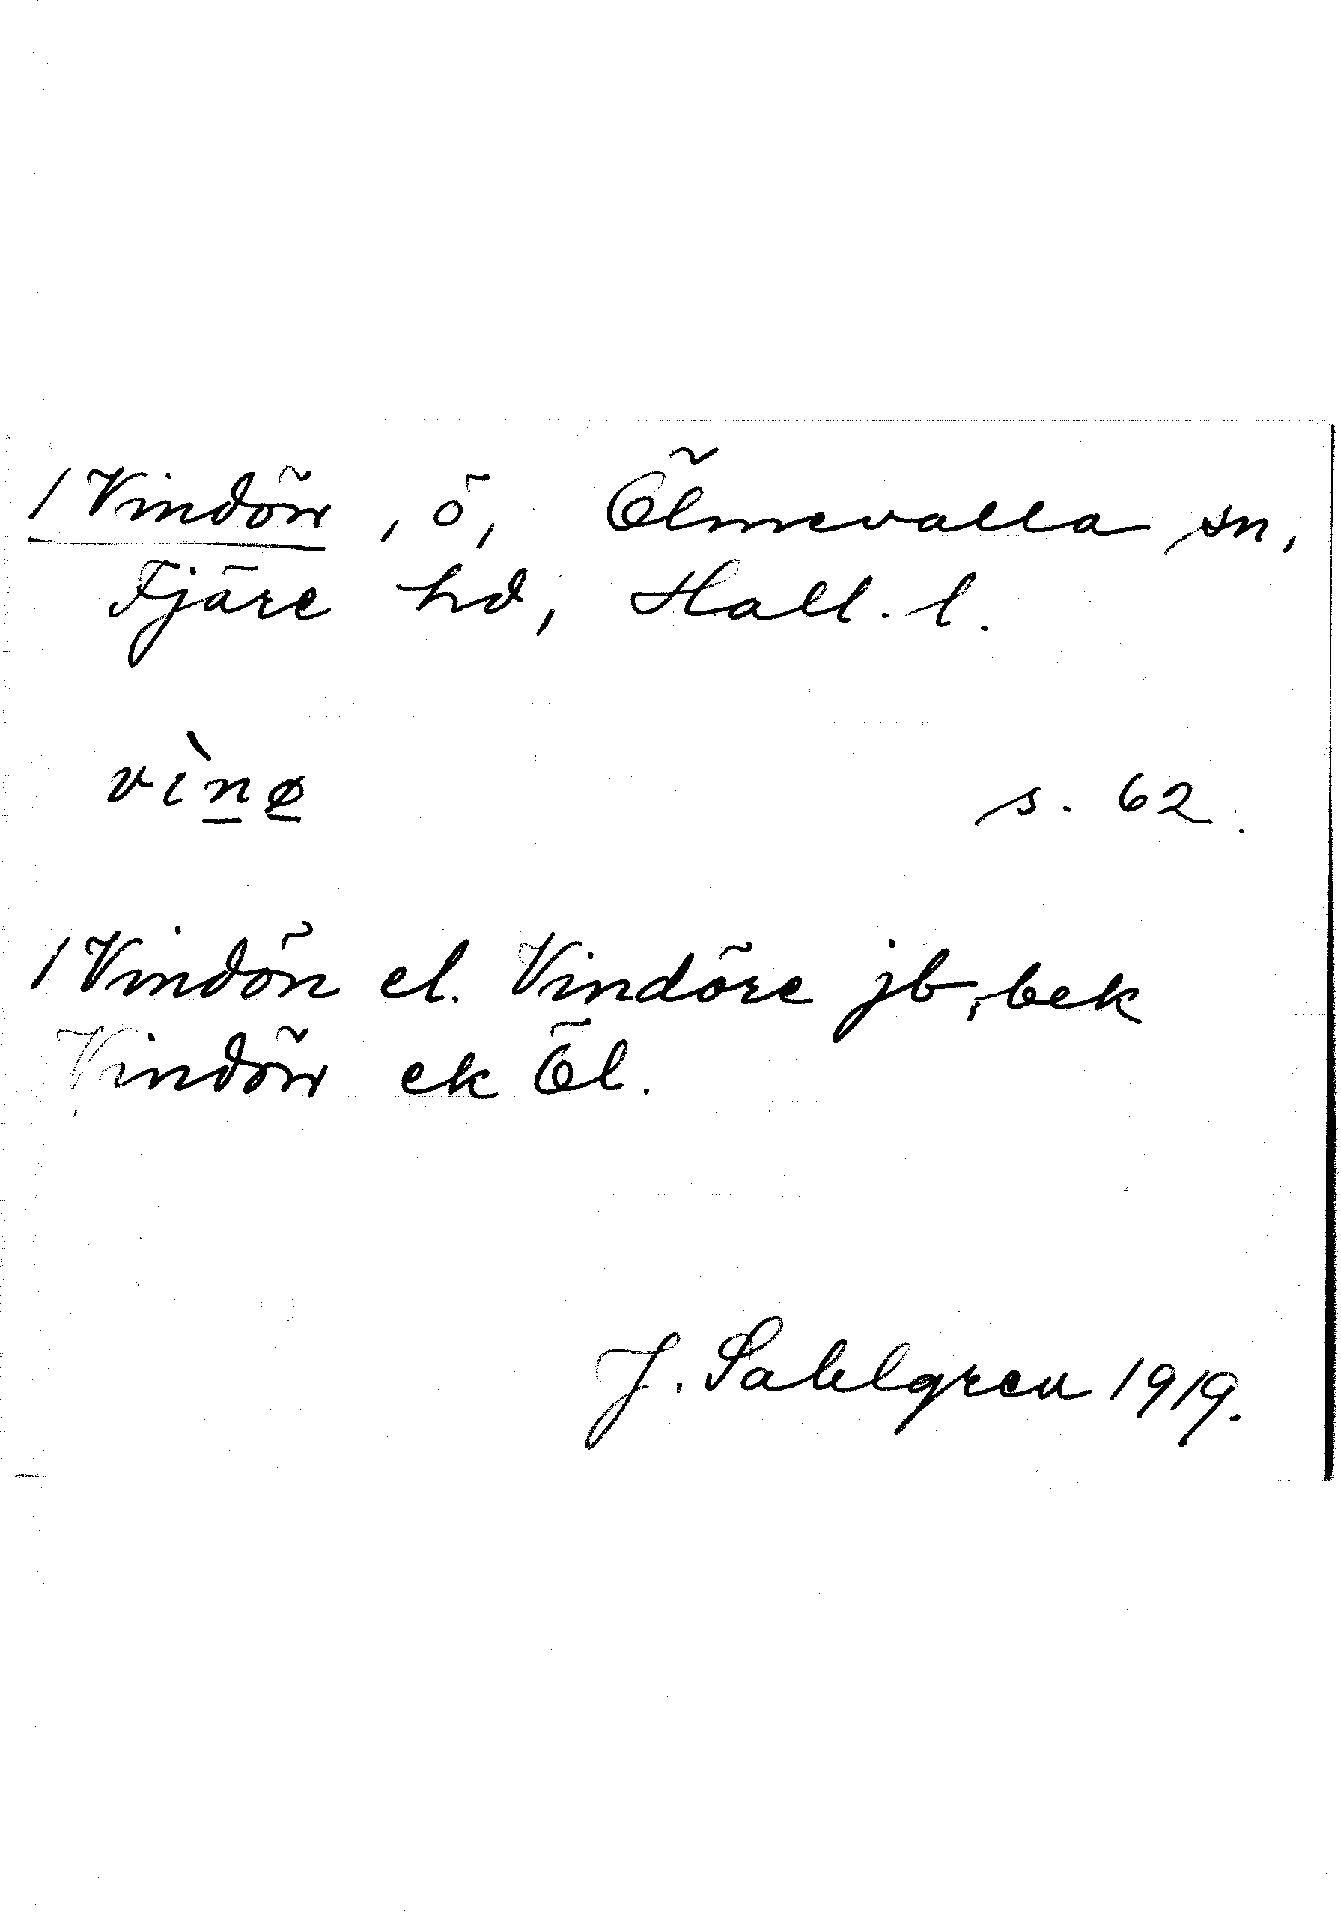 / Vindön, ö, Ölmevalla sn,
Fjäre hd, Hall. l.
vìnø s. 62.
/ Vindön el. Vindöre jb, bek
Vindör ek Öl.
J. Sahlgren 1919.